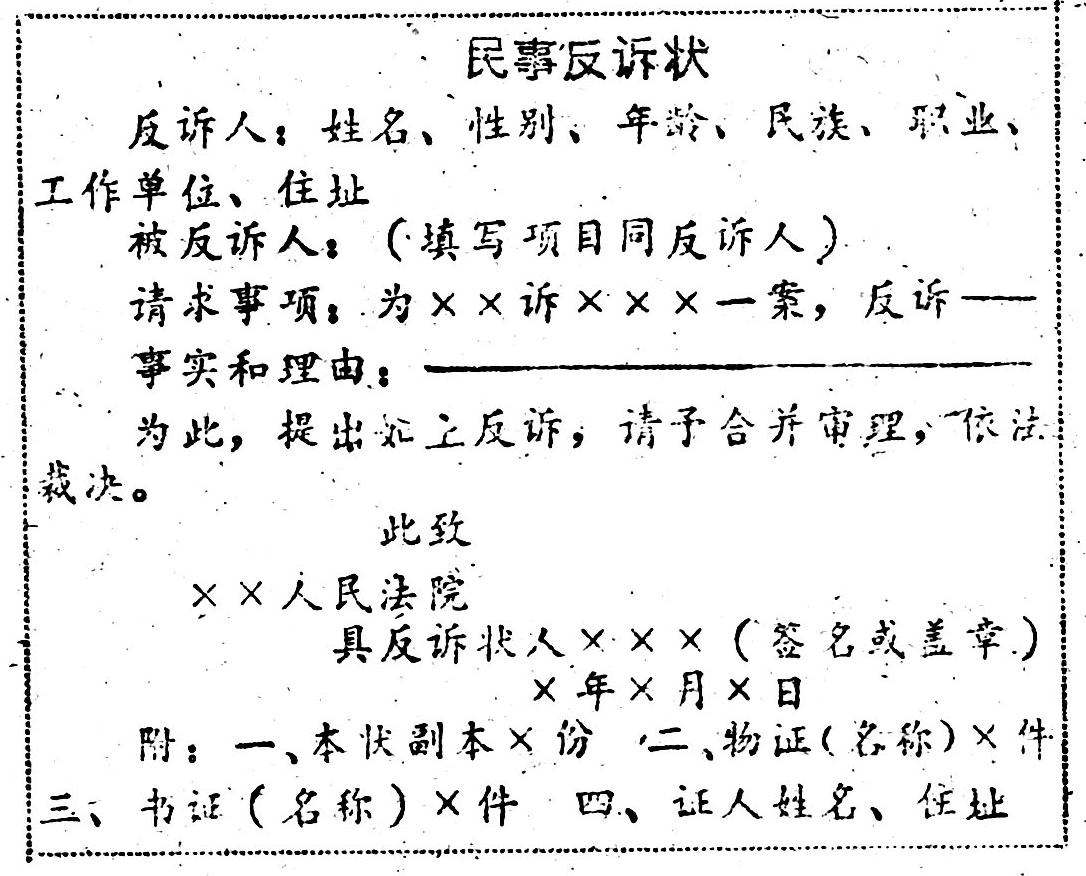 民事反诉状
反诉人：姓名、性别、年龄、民族、职业、
工作单位、住址
被反诉人：（填写项目同反诉人）
请求事项：为××诉×××一案，反诉——
事实和理由：——————————
为此，提出如上反诉，请予合并审理，依法
裁决。
此致
××人民法院
具反诉状人×××（签名或盖章）
×年×月×日
附：一、本状副本×份 二、物证（名称）×件
三、书证（名称）×件 四、证人姓名、住址